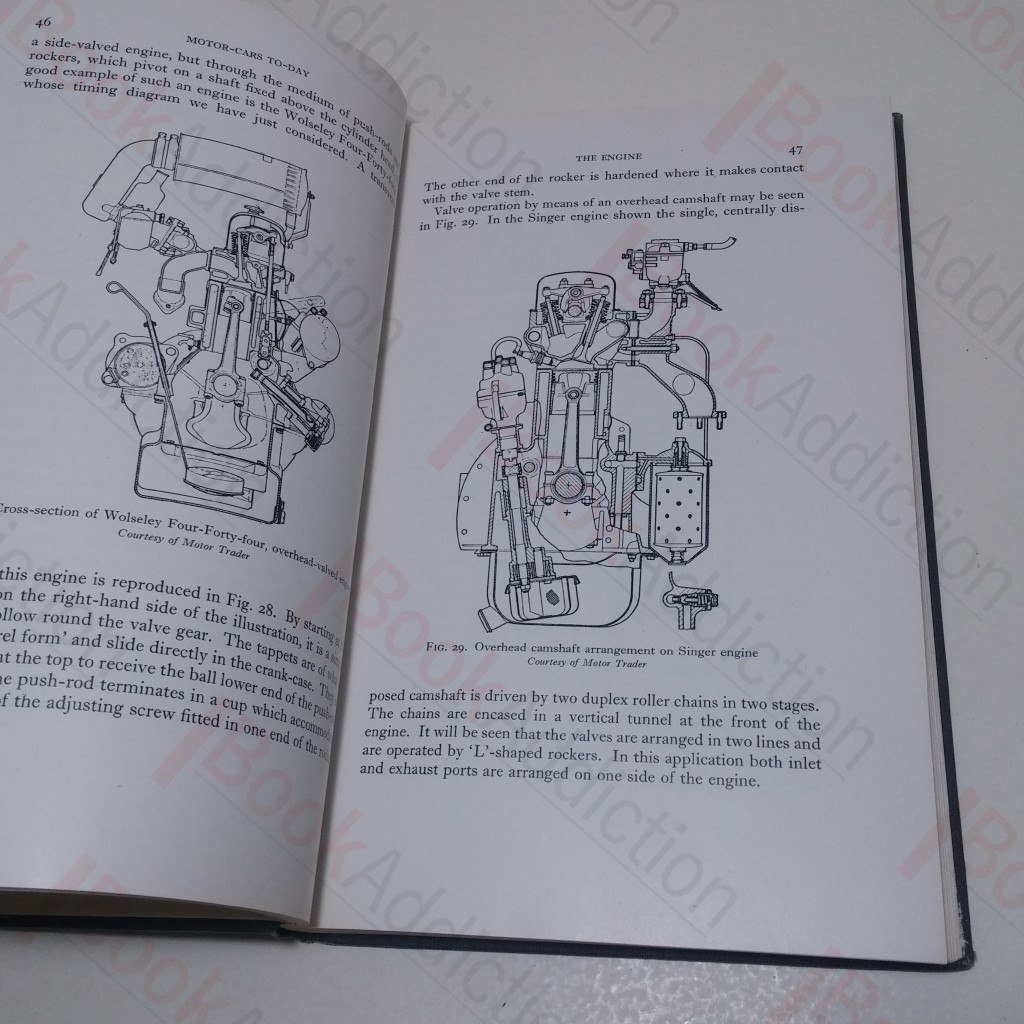 46
MOTOR-CARS TO-DAY
a side-valved engine, but through the medium of push-rods
rockers, which pivot on a shaft fixed above the cylinder head.
good example of such an engine is the Wolseley Four-Forty-four
whose timing diagram we have just considered. A
Cross-section of Wolseley Four-Forty-four, overhead-valved
Courtesy of Motor Trader
this engine is reproduced in Fig. 28. By starting
on the right-hand side of the illustration, it is a
ollow round the valve gear. The tappets are of
rel form' and slide directly in the crank-case.
at the top to receive the ball lower end of the push-
he push-rod terminates in a cup which accommod
of the adjusting screw fitted in one end of the
THE ENGINE
47
The other end of the rocker is hardened where it makes contact
with the valve stem.
Valve operation by means of an overhead camshaft may be seen
in Fig. 29. In the Singer engine shown the single, centrally dis-
FIG. 29. Overhead camshaft arrangement on Singer engine
Courtesy of Motor Trader
posed camshaft is driven by two duplex roller chains in two stages.
The chains are encased in a vertical tunnel at the front of the
engine. It will be seen that the valves are arranged in two lines and
are operated by 'L'-shaped rockers. In this application both inlet
and exhaust ports are arranged on one side of the engine.
BookAddiction